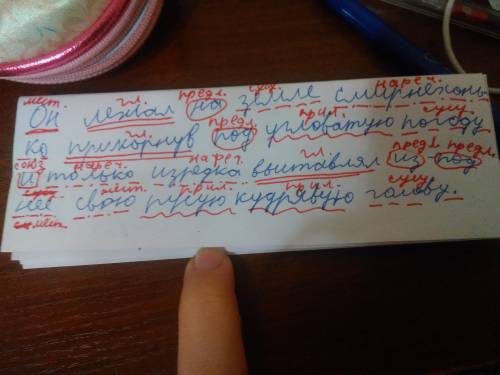 мест. гл. предл. сущ. нареч.
Он лежал на земле смирнехонь
гл. предл. прил. сущ.
ко прикорнув под угловатую погоду
союз нареч. нареч. гл. предл. предл.
и только изредка выставлял из под
мест. прил. прил. сущ.
неё свою русую кудрявую голову.
мест.